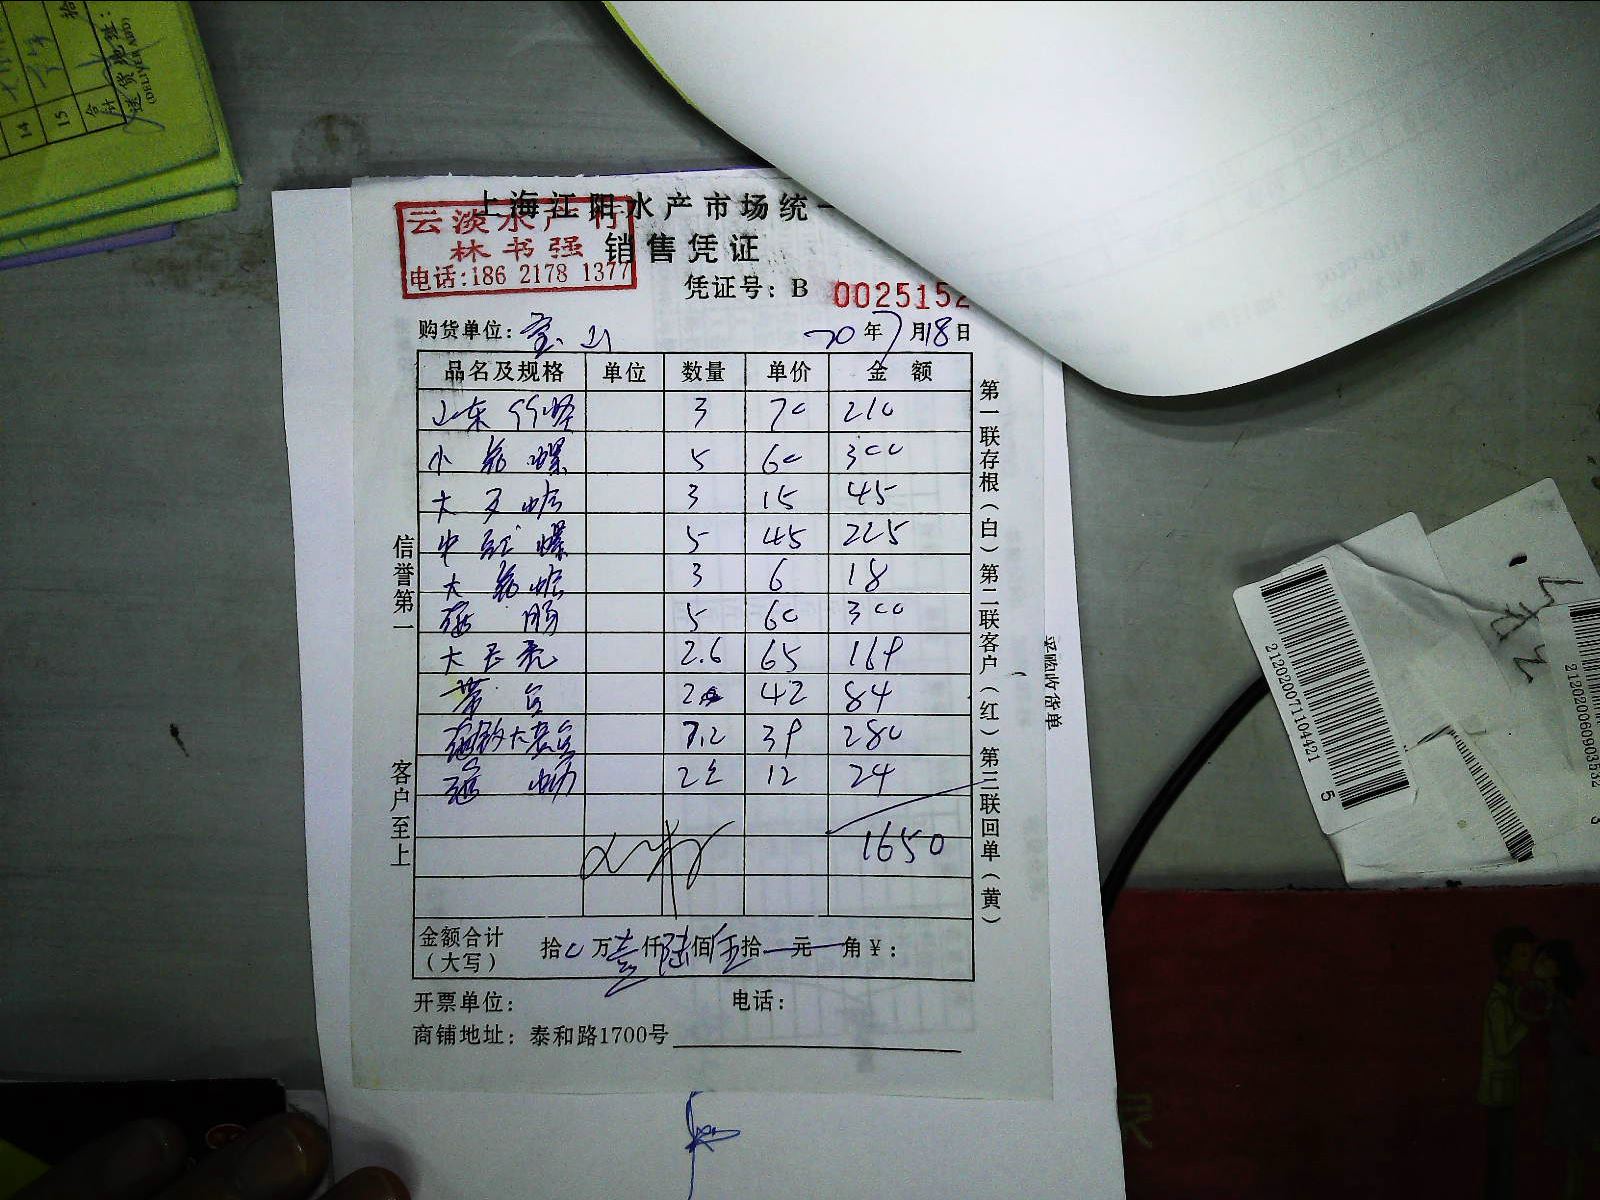 14
15
合计
送货地址:
(DELIVER ADD)
上海江阳水产市场统一
云淡水产行
林书强
电话:186 2178 1377
销售凭证
凭证号: B 0025152
购货单位: 宝山 20年7月18日
品名及规格 单位 数量 单价 金额
山东竹蛏 3 70 210
小花螺 5 60 300
大文蛤 3 15 45
中红螺 5 45 225
大花蛤 3 6 18
海肠 5 60 300
2.6 65 169
2 42 84
7.2 39 280
2 12 24
1650
金额合计
(大写)
拾0万壹仟陆佰伍拾 元 角¥:
开票单位: 电话:
商铺地址: 泰和路1700号
信誉第一
客户至上
第一联存根(白)第二联客户(红)第三联回单(黄)
采购收货单
2120200711104421
5
2120200609035532
3